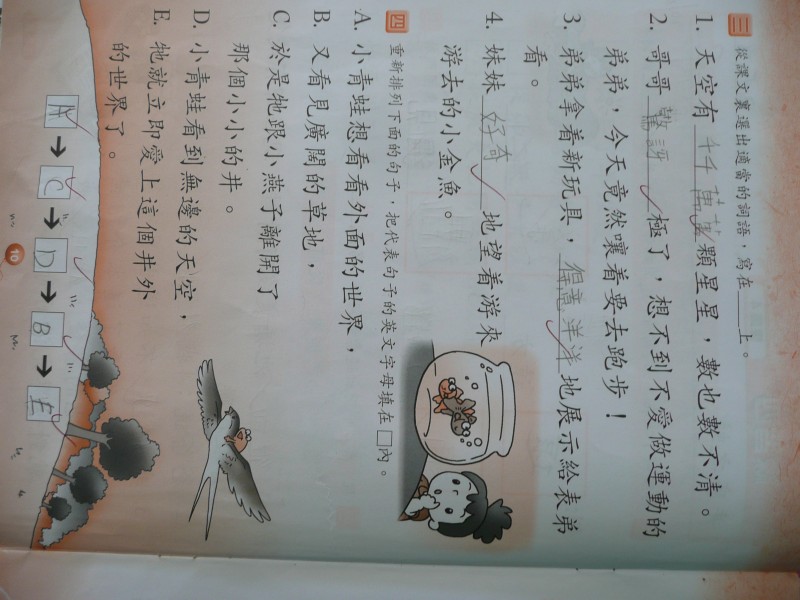 三 從課文裏選出適當的詞語，寫在___上。
1. 天空有千千萬萬顆星星，數也數不清。
2. 哥哥驚訝極了，想不到不愛做運動的
弟弟，今天竟然嚷着要去跑步！
3. 弟弟拿着新玩具，得意洋洋地展示給表弟
看。
4. 妹妹好奇地望着游來
游去的小金魚。
四 重新排列下面的句子，把代表句子的英文字母填在□內。
A. 小青蛙想看看外面的世界，
B. 又看見廣闊的草地，
C. 於是牠跟小燕子離開了
那個小小的井。
D. 小青蛙看到無邊的天空，
E. 牠就立即愛上這個井外
的世界了。
A → C → D → B → E
10